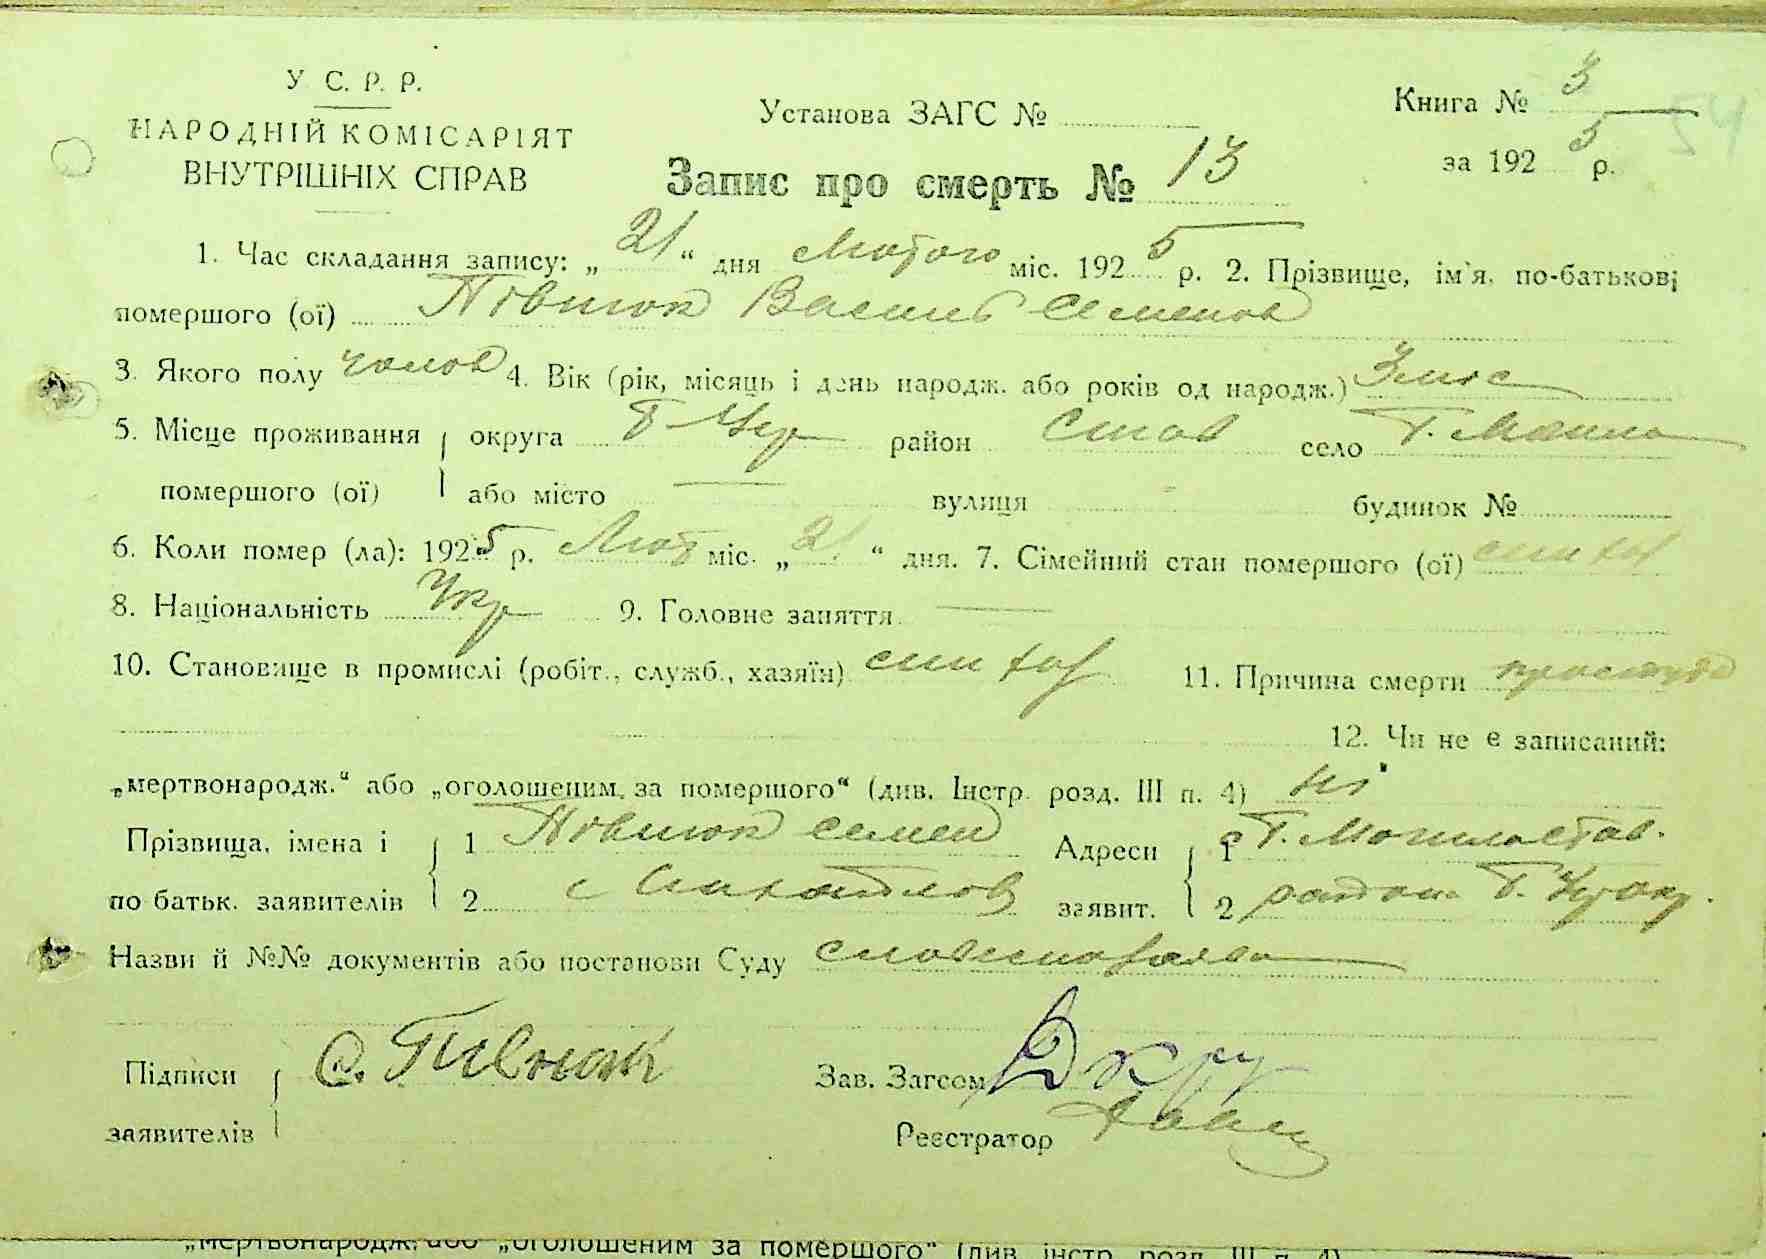 У С. Р. Р.
НАРОДНІЙ КОМІСАРІЯТ
ВНУТРІШНІХ СПРАВ
Установа ЗАГС №
Книга № 3
за 192 5 р.
54
Запис про смерть № 13
1. Час складання запису: „ 21 “ дня Лютого міс. 192 5 р. 2. Прізвище, ім'я, по-батькові
помершого (ої) Півнюк Василь Семенов
3. Якого полу чолов 4. Вік (рік, місяць і день народж. або років од народж.) 3 міс
5. Місце проживання округа Б Цер район Став село Г. Могила
помершого (ої) або місто — вулиця будинок №
6. Коли помер (ла): 192 5 р. Лют міс. „ 21 “ дня. 7. Сімейний стан помершого (ої)
8. Національність Укр 9. Головне заняття —
10. Становище в промислі (робіт., служб., хазяїн) 11. Причина смерти простуда
12. Чи не є записаний:
„мертвонародж.“ або „оголошеним за помершого“ (див. Інстр. розд. III п. 4) ні
Прізвища, імена і 1 Півнюк Семен Адреси 1 с Г. Могила Став.
по батьк. заявителів 2 заявит. 2 району Б. Ц окр.
Назви й №№ документів або постанови Суду словесна заява
Підписи С. Пивнюк Зав. Загсом
заявителів Реєстратор
„мертвонародж. або „оголошеним за помершого“ (див. інстр. розд. III п. 4)